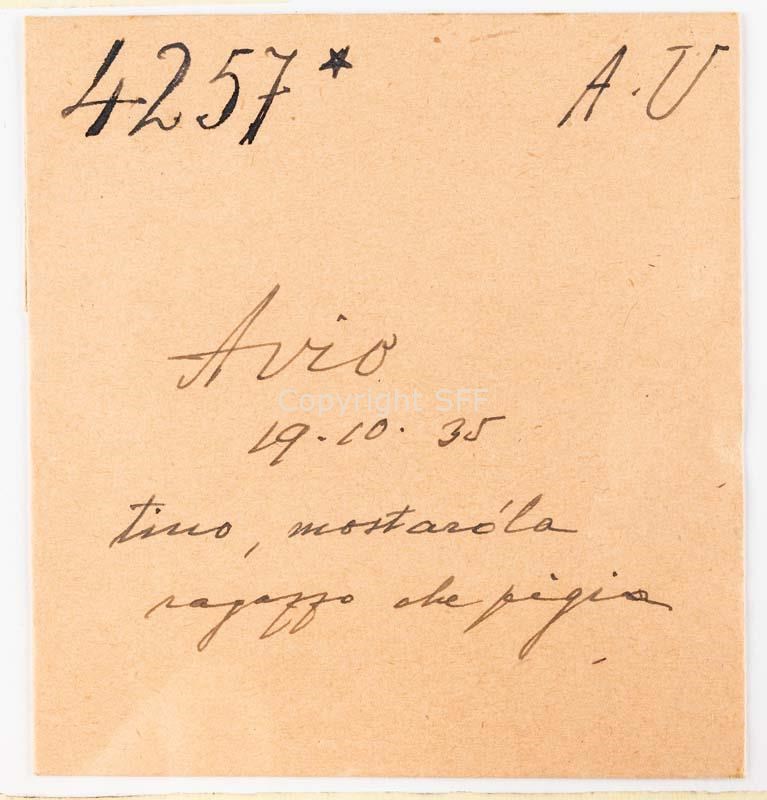 4257* A.U
Avio
Copyright SFF
19.10.35
tino, mostaróla
ragazzo che pigia